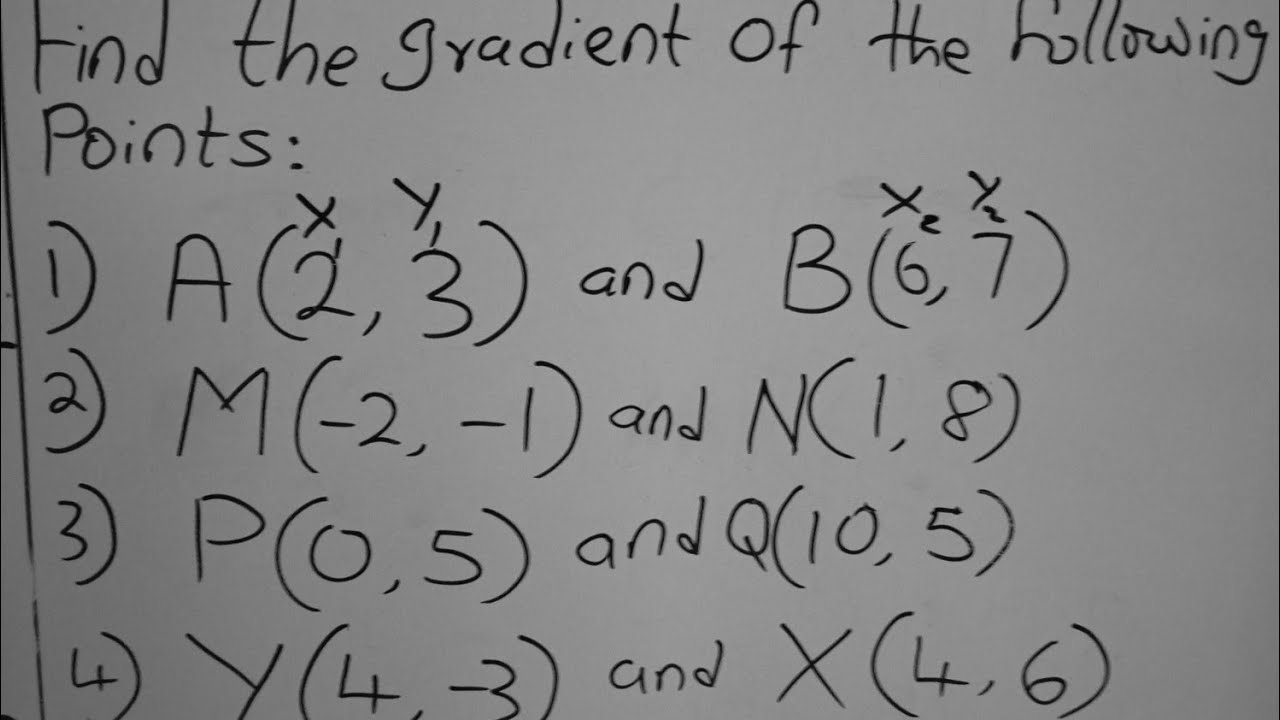 Find the gradient of the following
Points:
X₁ Y₁ X₂ Y₂
1) A(2, 3) and B(6, 7)
2) M(-2, -1) and N(1, 8)
3) P(0, 5) and Q(10, 5)
4) Y(4, -3) and X(4, 6)